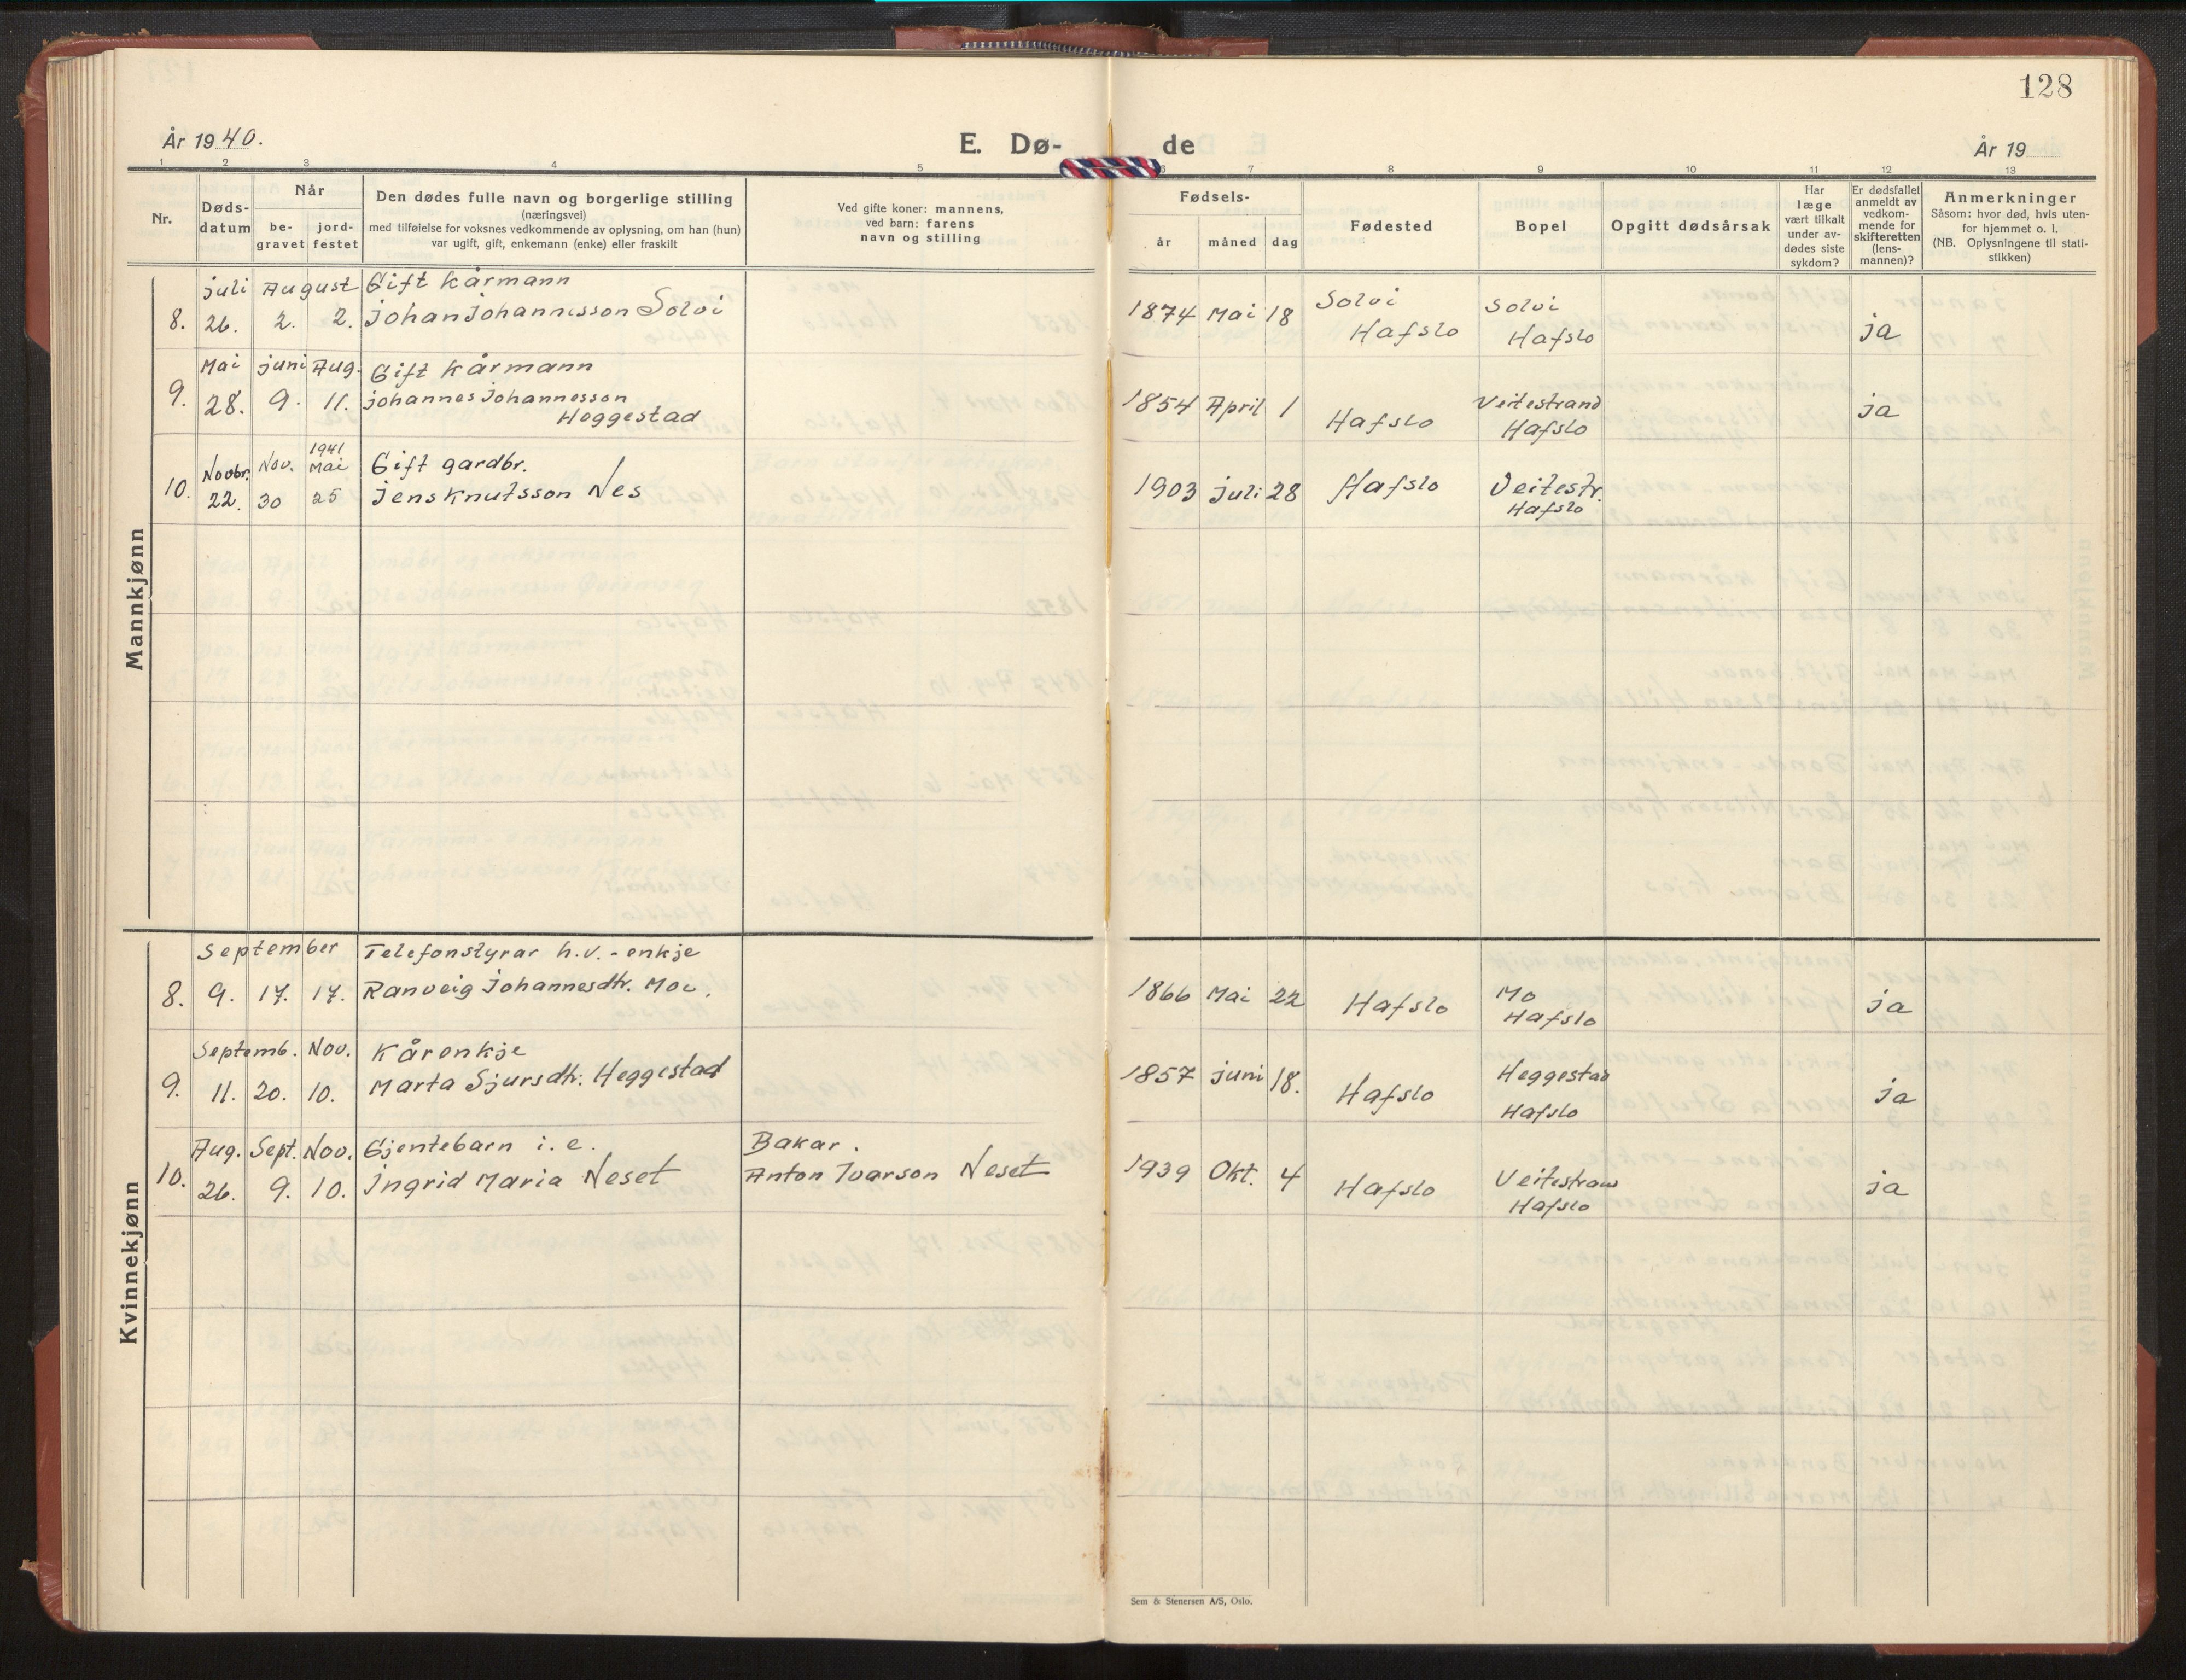 128
År 1940.
E. Dø-
de
År 19
1 2 3 4 5 6 7 8 9 10 11 12 13
Nr.
Døds-
datum
Når
be-
gravet
jord-
festet
Den dødes fulle navn og borgerlige stilling
(næringsvei)
med tilføielse for voksnes vedkommende av oplysning, om han (hun)
var ugift, gift, enkemann (enke) eller fraskilt
Ved gifte koner: mannens,
ved barn: farens
navn og stilling
Fødsels-
år måned dag
Fødested
Bopel
Opgitt dødsårsak
Har
læge
vært tilkalt
under av-
dødes siste
sykdom?
Er dødsfallet
anmeldt av
vedkom-
mende for
skifteretten
(lens-
mannen)?
Anmerkninger
Såsom: hvor død, hvis uten-
for hjemmet o. l.
(NB. Oplysningene til stati-
stikken)
Mannkjønn
juli August Gift kårmann
8. 26. 2. 2. Johan Johannesson Solvi 1874 Mai 18 Solvi Hafslo Solvi Hafslo ja
Mai juni Aug. Gift kårmann
9. 28. 9. 11. Johannes Johannesson
Heggestad 1854 April 1 Hafslo Veitestrand Hafslo ja
1941
Novbr. Nov. Mai Gift gardbr.
10. 22. 30 25 Jens Knutsson Nes 1903 juli 28 Hafslo Veitestr. Hafslo
Kvinnekjønn
September Telefonstyrar h.v. - enkje
8. 9. 17. 17. Ranveig Johannesdtr. Moe. 1866 Mai 22 Hafslo Mo Hafslo ja
Septemb. Nov. Kårenkje
9. 11. 20. 10. Marta Sjursdtr. Heggestad 1857 juni 18. Hafslo Heggestad Hafslo ja
Aug. Sept. Nov. Gjentebarn i. e. Bakar.
10. 26. 9. 10. Ingrid Maria Neset Anton Ivarson Neset 1939 Okt. 4 Hafslo Veitestrand Hafslo ja
Sem & Stenersen A/S, Oslo.